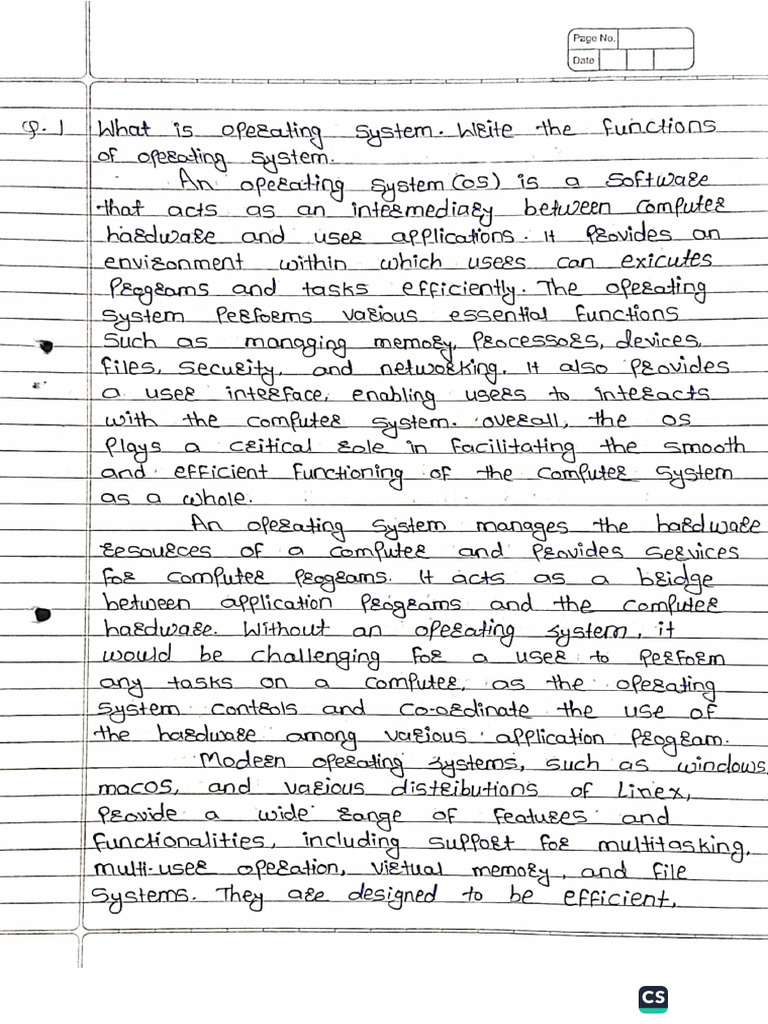 Page No.
Date
Q. 1 What is operating system. Write the functions
of operating system.
An operating system (OS) is a software
that acts as an intermediary between computer
hardware and user applications. It provides an
environment within which users can exicutes
programs and tasks efficiently. The operating
system performs various essential functions
such as managing memory, processors, devices,
files, security, and networking. It also provides
a user interface, enabling users to interacts
with the computer system. overall, the OS
plays a critical role in facilitating the smooth
and efficient functioning of the computer system
as a whole.
An operating system manages the hardware
resources of a computer and provides services
for computer programs. It acts as a bridge
between application programs and the computer
hardware. Without an operating system, it
would be challenging for a user to perform
any tasks on a computer, as the operating
system controls and co-ordinate the use of
the hardware among various application program.
Modern operating systems, such as windows,
macos, and various distributions of Linex,
provide a wide range of features and
functionalities, including support for multitasking,
multi-user operation, virtual memory, and file
systems. They are designed to be efficient,
CS